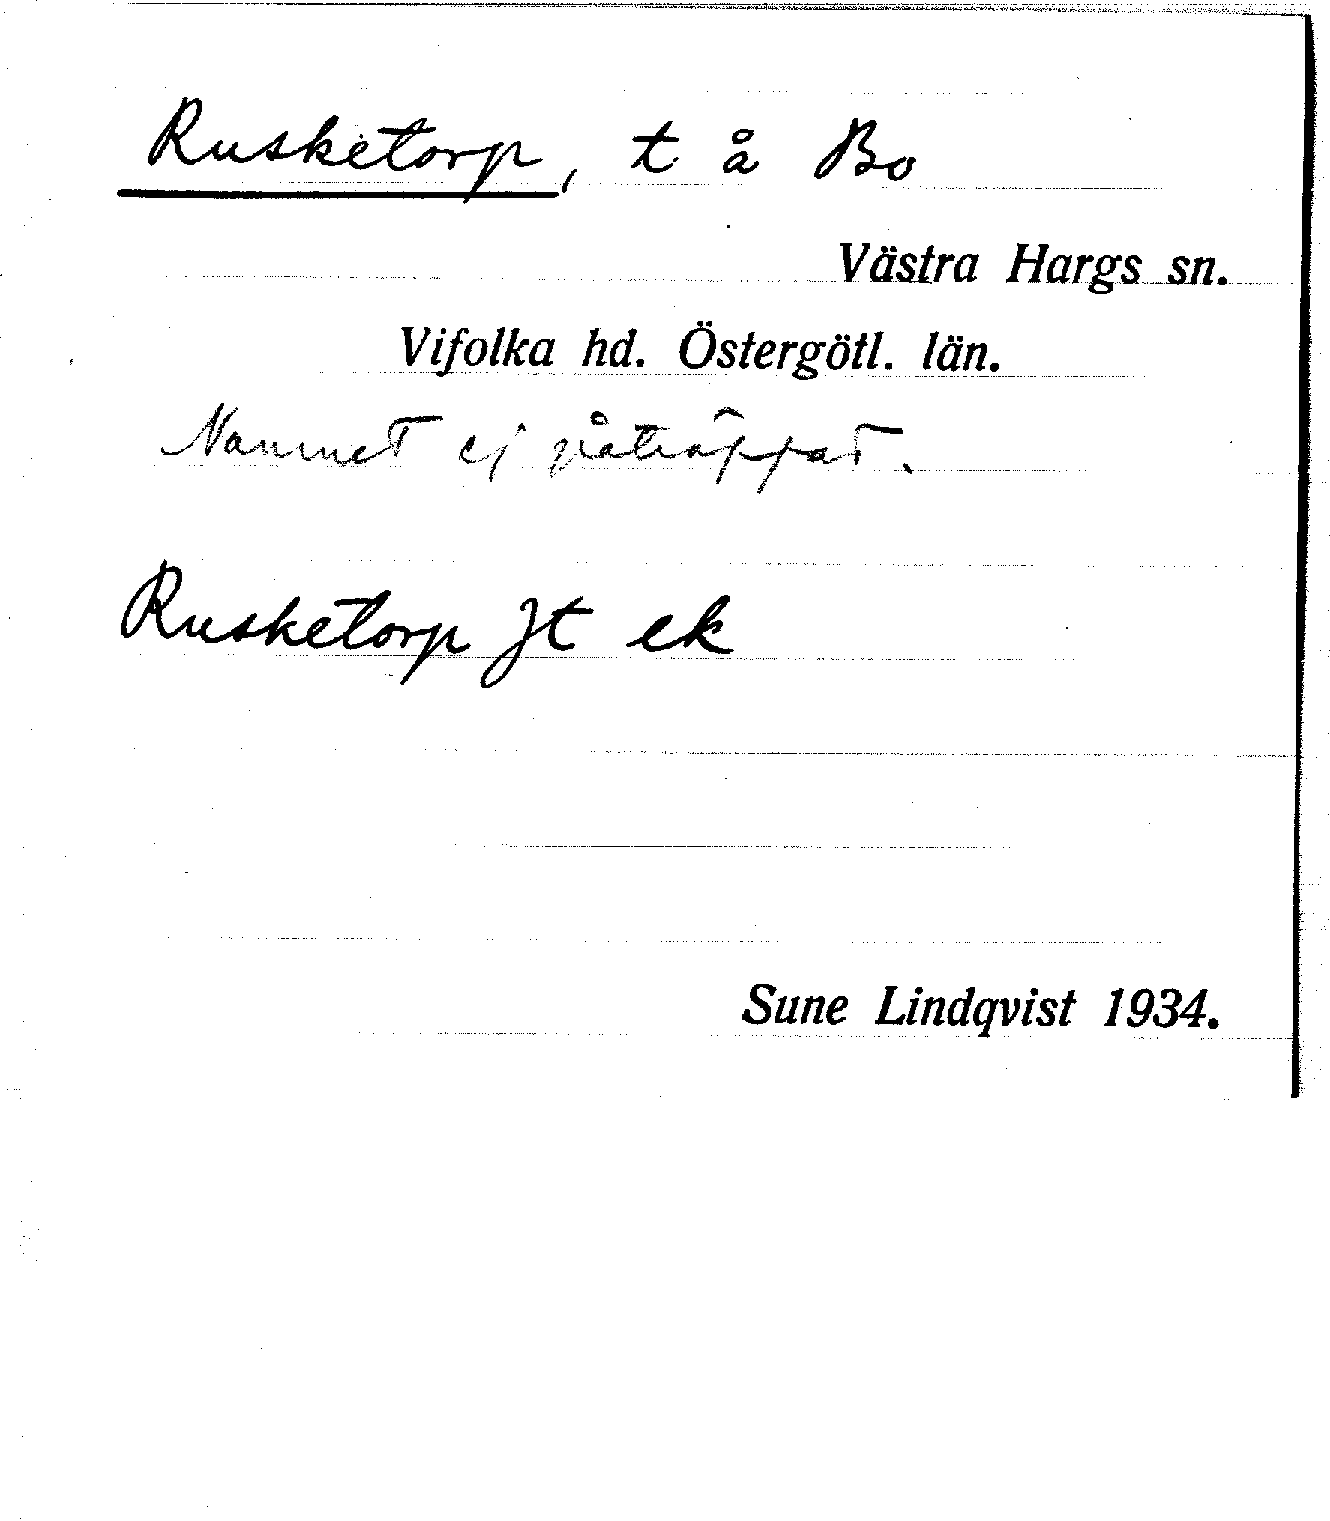 Rusketorp, t å Bo
Västra Hargs sn.
Vifolka hd. Östergötl. län.
Namnet ej påträffat.
Rusketorp Jt ek
Sune Lindqvist 1934.